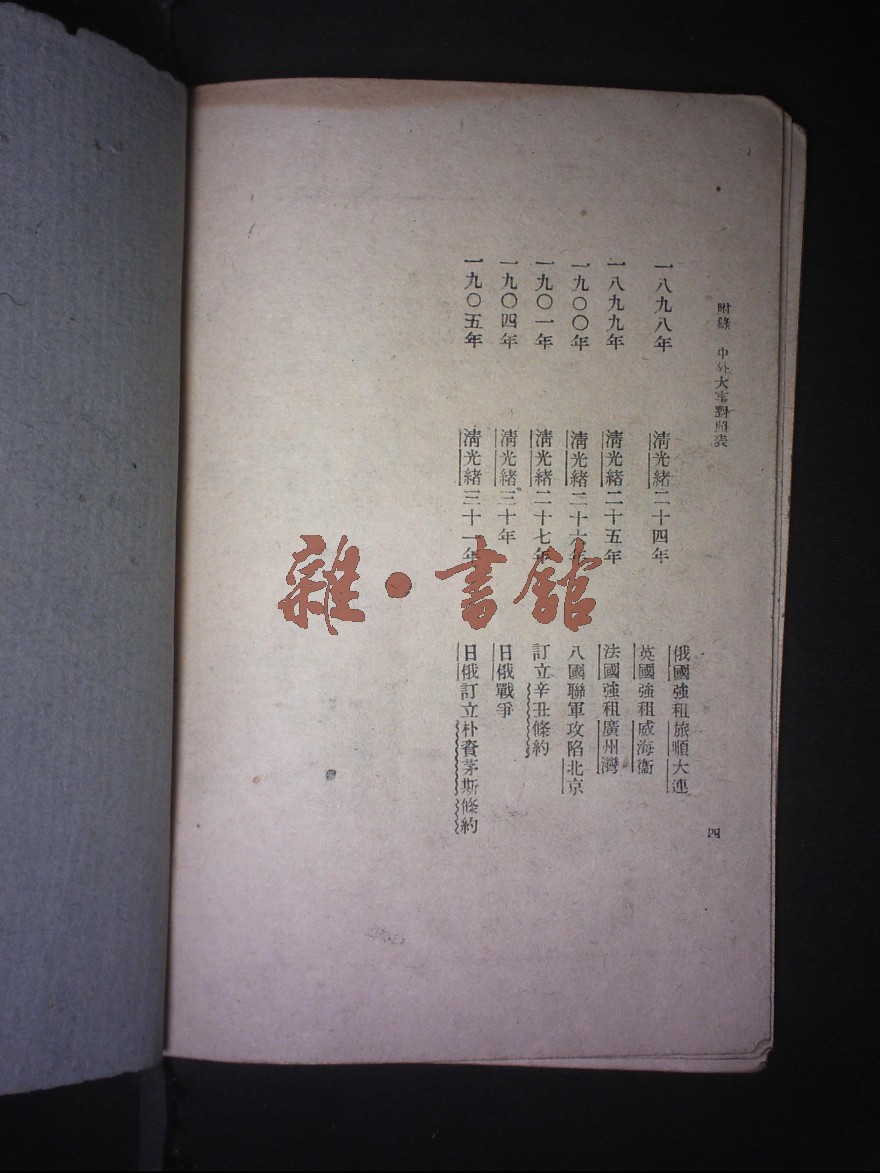 附錄 中外大事對照表
四
一八九八年 清光緒二十四年 俄國強租旅順大連
英國強租威海衞
一八九九年 清光緒二十五年 法國強租廣州灣
一九〇〇年 清光緒二十六年 八國聯軍攻陷北京
一九〇一年 清光緒二十七年 訂立辛丑條約
一九〇四年 清光緒三十年 日俄戰爭
一九〇五年 清光緒三十一年 日俄訂立朴資茅斯條約
雜·書館